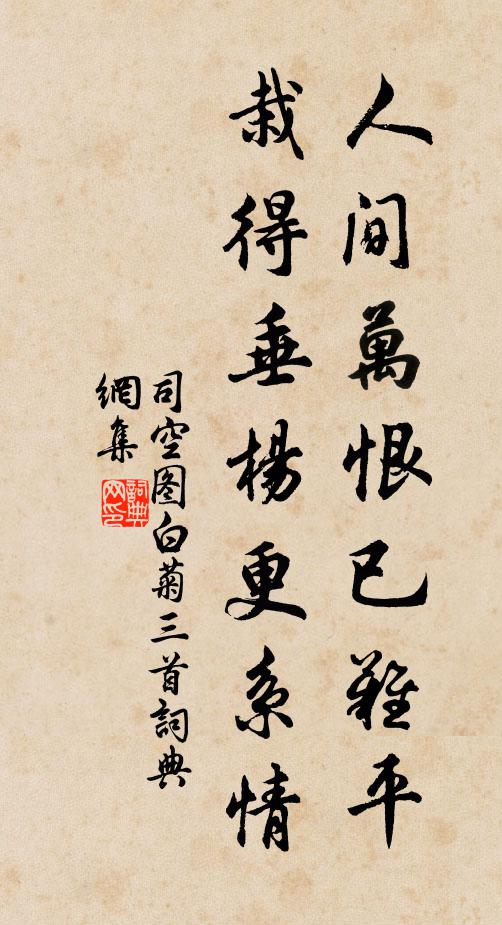 人間萬恨已難平
栽得垂楊更系情
司空图白菊三首詞典
網集
詞典
网印